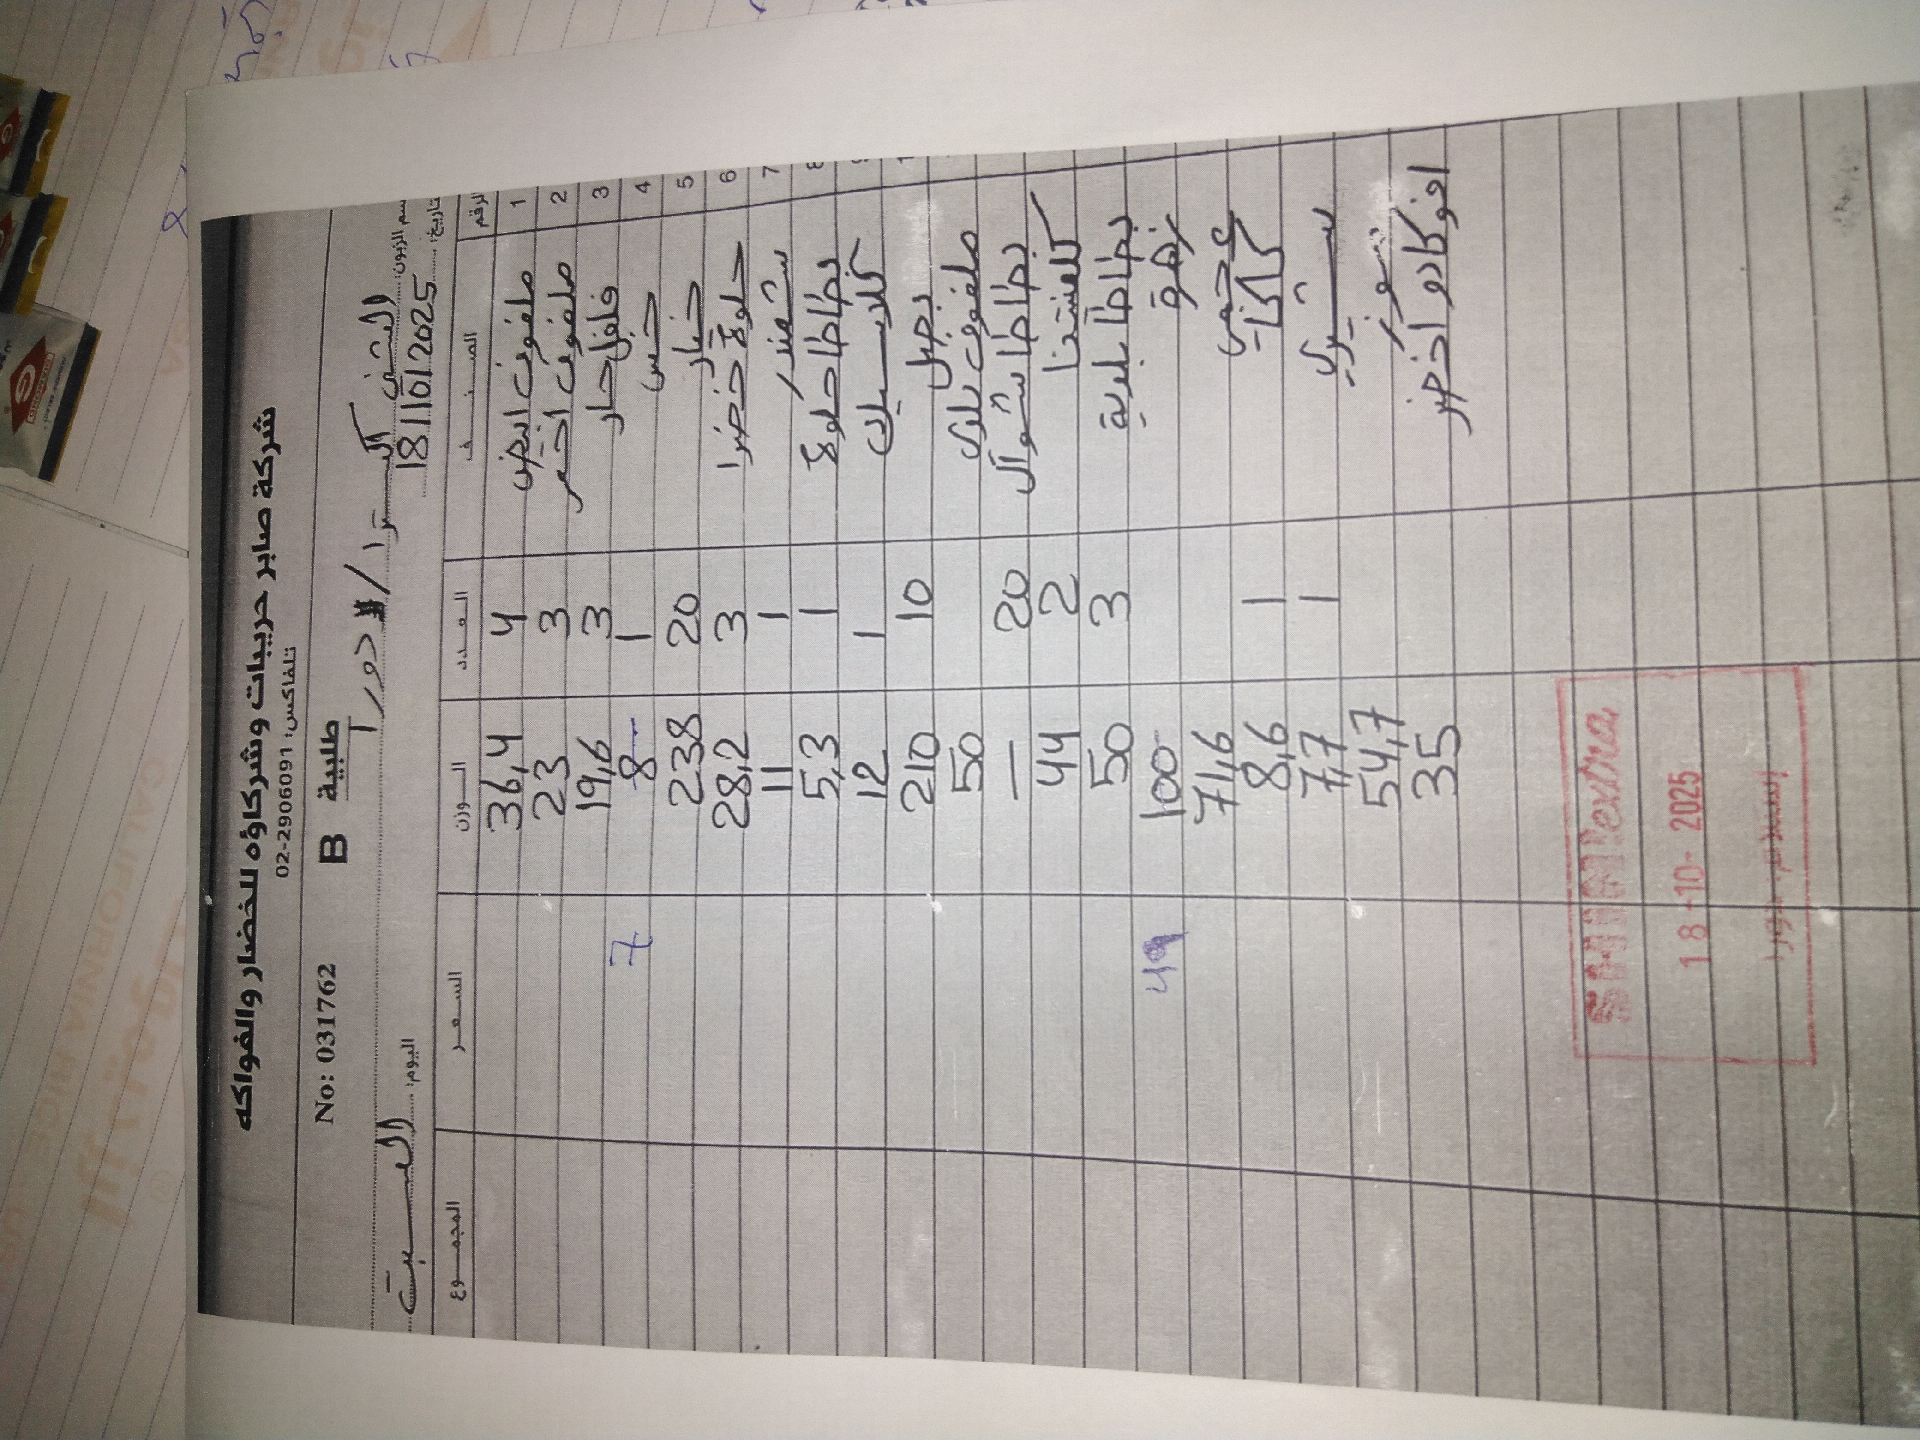 شركة صابر حريبات وشركاؤه للخضار والفواكه
تلفاكس: 02-2906091
No: 0317762 B طلبية
اسم الزبون: الشني اكسترا / دورا
اليوم: السبت التاريخ: 18/10/2025
الرقم الصنف العدد الوزن السعر المجموع
1 ملفوف ابيض 4 36,4
2 ملفوف احمر 3 23
3 فلفل حار 3 19,6
4 خس 1 8 7
5 خيار 20 238
6 حلوة خضرا 3 28,2
7 شمندر 1 11
8 بطاطا حلوة 1 5,3
كلاسيك 1 12
بصل 10 210
ملفوف بلدي 50
بطاطا شوال 20 —
كلمنتينا 2 44
بطاطا بلدية 3 50
زهرة 100 49
عجمي 71,6
كاكا 1 8,6
1 7,7
موز 54,7
افوكادو اخضر 35
SHINIextra
18-10-2025
استلام دورا